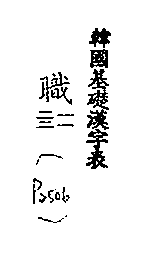 韓國基礎漢字表
職
三二
(P2506)